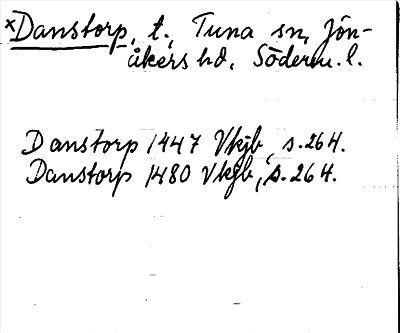 ×Danstorp, t., Tuna sn, Jön-
åkers hd, Söderm. l.
Danstorp 1447 Vkjb, s. 264.
Danstorp 1480 Vkjb, s. 264.